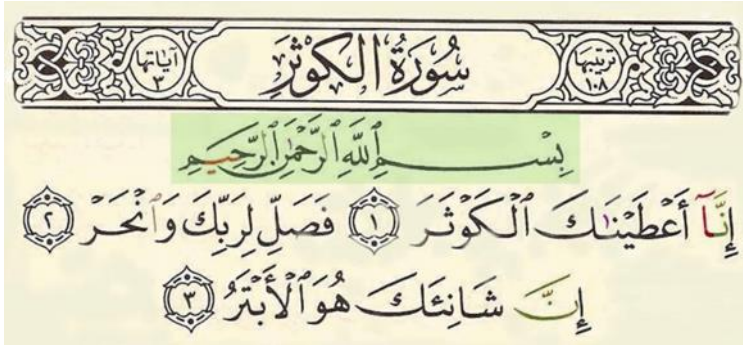 ترتيبها ١٠٨ سُورَةُ الكَوْثَرِ آياتها ٣
بِسْمِ ٱللَّهِ ٱلرَّحْمَٰنِ ٱلرَّحِيمِ
إِنَّآ أَعْطَيْنَٰكَ ٱلْكَوْثَرَ ١ فَصَلِّ لِرَبِّكَ وَٱنْحَرْ ٢
إِنَّ شَانِئَكَ هُوَ ٱلْأَبْتَرُ ٣